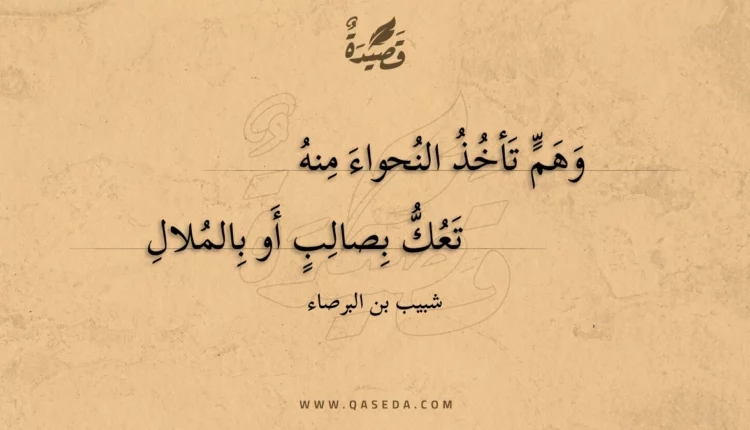 قَصِيْدَةٌ
وَهَمٍّ تَأخُذُ النُحواءَ مِنهُ
تَعُكُّ بِصالِبٍ أَو بِالمُلالِ
شبيب بن البرصاء
WWW.QASEDA.COM